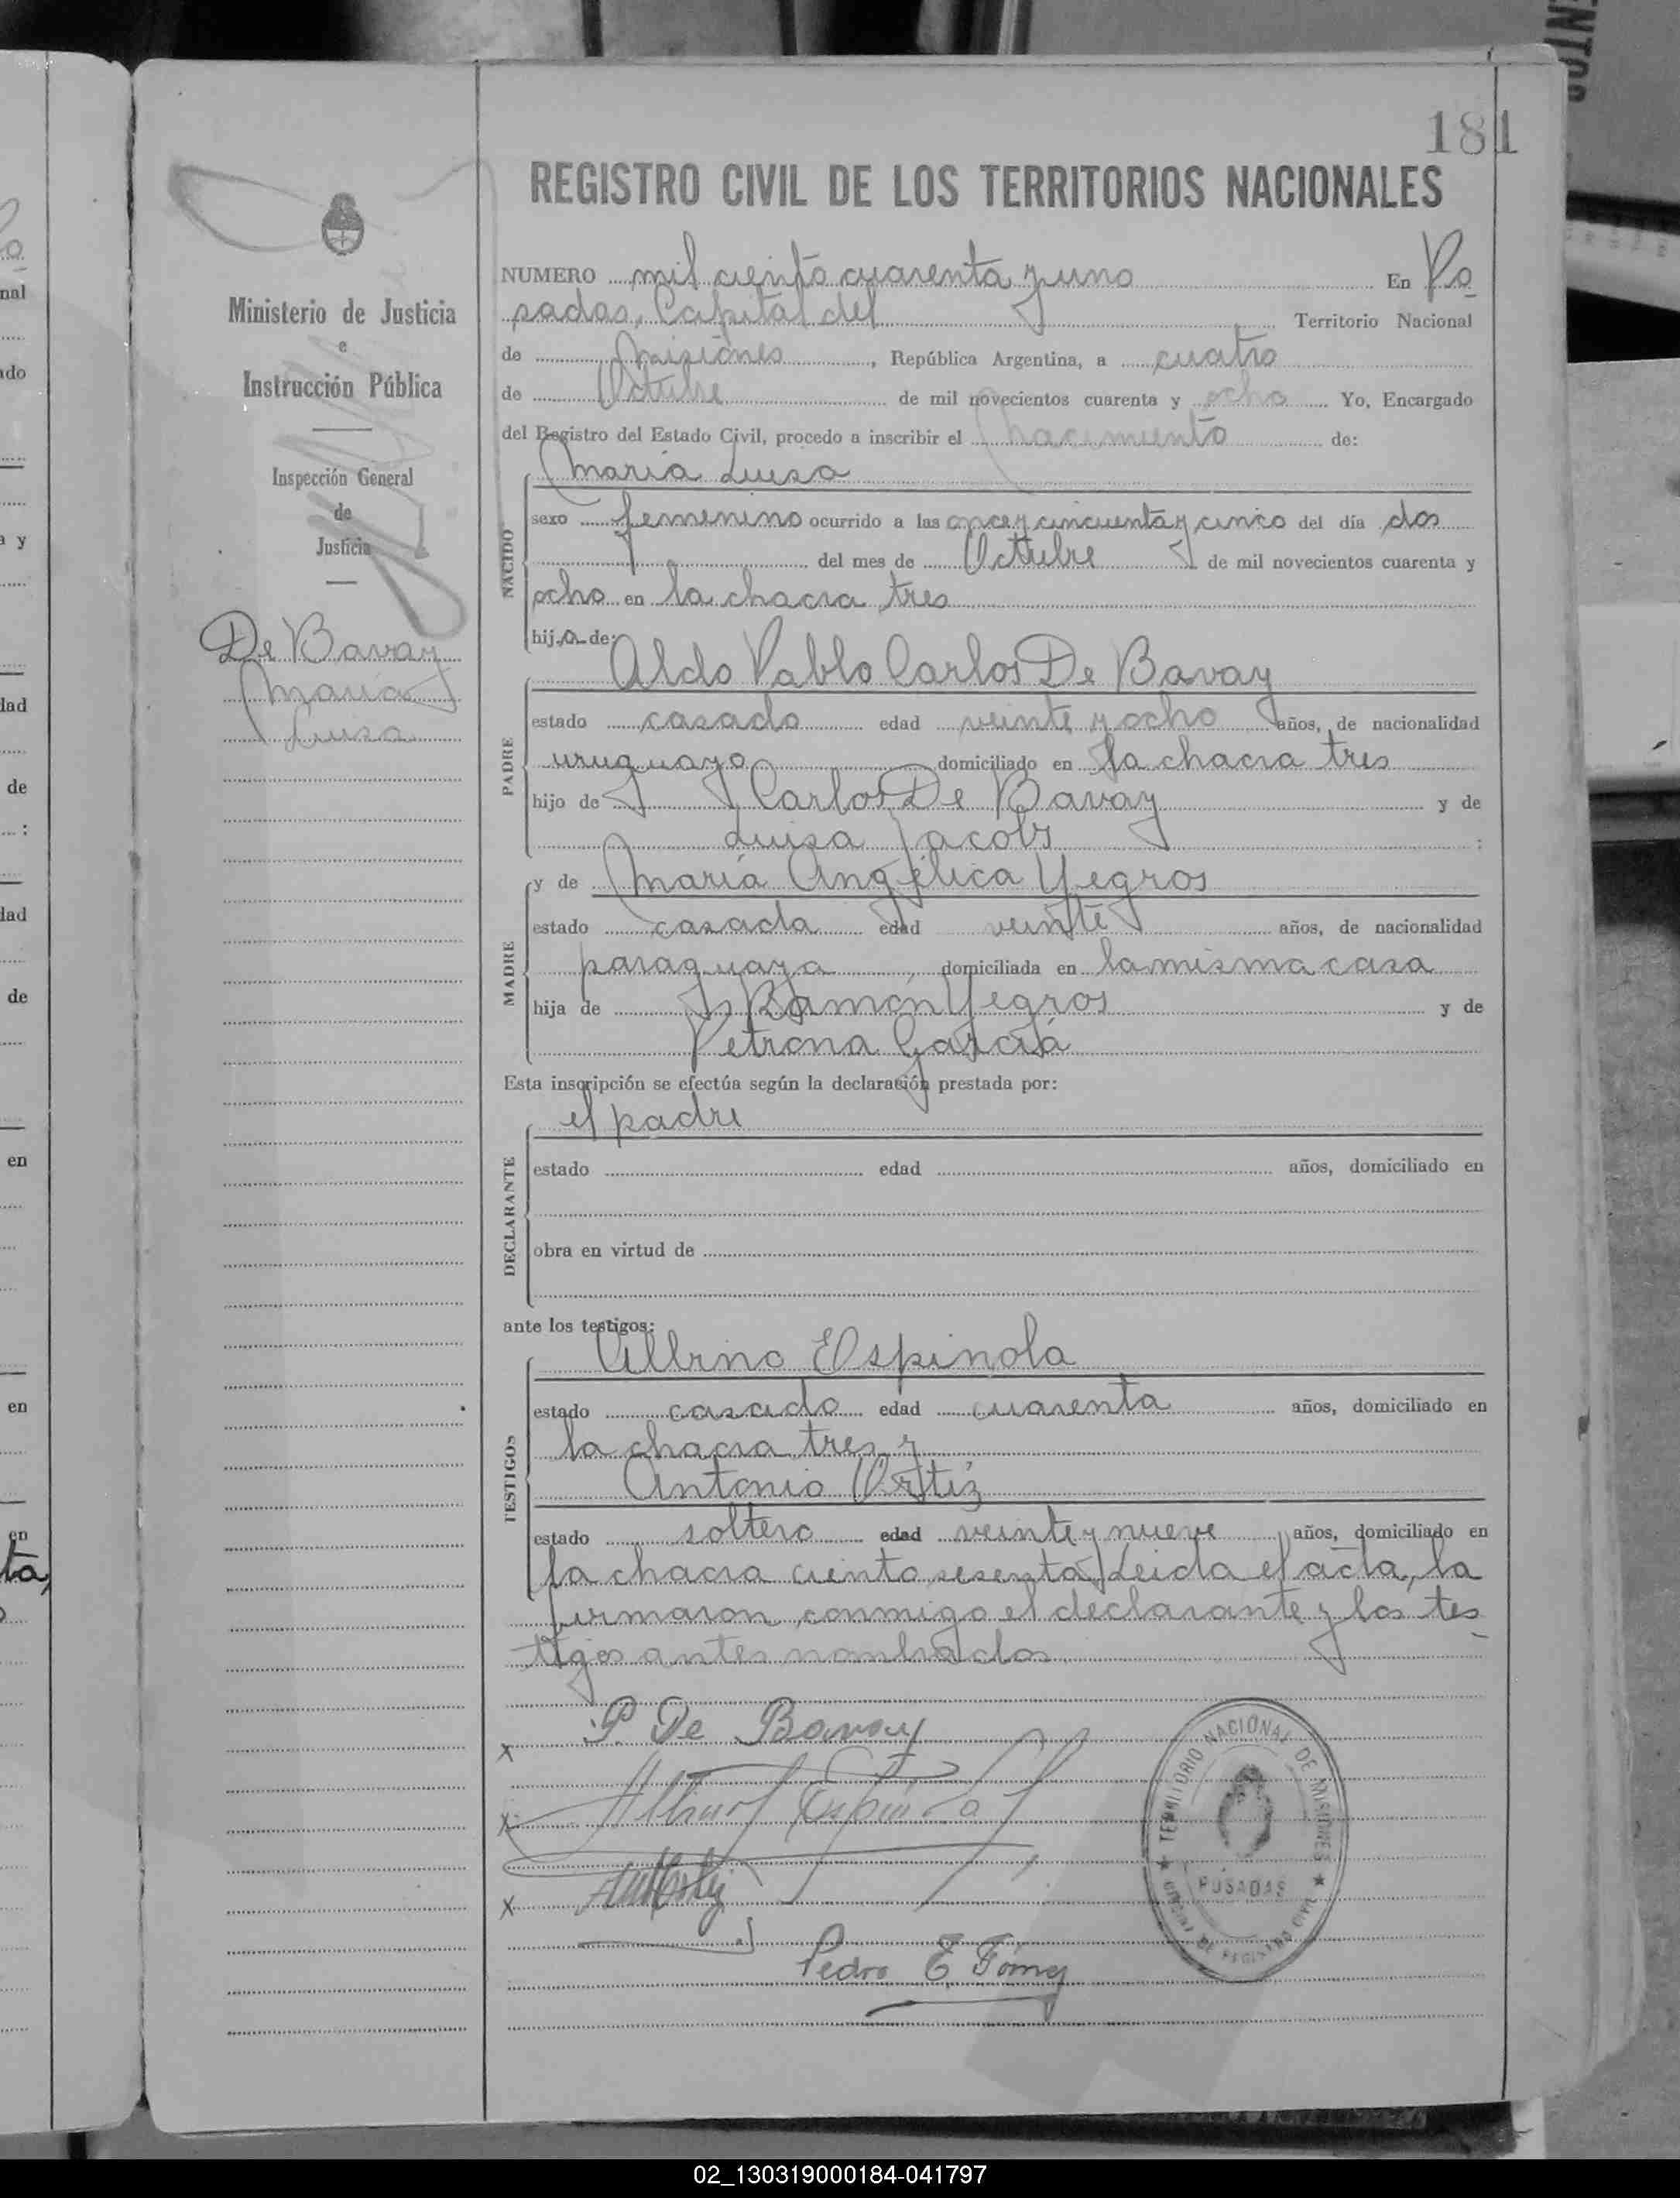 181
REGISTRO CIVIL DE LOS TERRITORIOS NACIONALES
Ministerio de Justicia
e
Instrucción Pública
Inspección General
de
Justicia
De Bavay
Maria
Luisa
NUMERO mil ciento cuarenta y uno En Po
sadas, Capital del Territorio Nacional
de Misiones, República Argentina, a cuatro
de Octubre de mil novecientos cuarenta y ocho Yo, Encargado
del Registro del Estado Civil, procedo a inscribir el nacimiento de:
NACIDO
Maria Luisa
sexo femenino ocurrido a las once y cincuenta y cinco del día dos
del mes de Octubre de mil novecientos cuarenta y
ocho en la chacra tres
hija de:
PADRE
Aldo Pablo Carlos De Bavay
estado casado edad veinte y ocho años, de nacionalidad
uruguayo domiciliado en la chacra tres
hijo de Carlos De Bavay y de
Luisa Jacobs;
MADRE
y de María Angélica Yegros
estado casada edad veinte años, de nacionalidad
paraguaya, domiciliada en la misma casa
hija de Ramón Yegros y de
Petrona García
Esta inscripción se efectúa según la declaración prestada por:
DECLARANTE
el padre
estado edad años, domiciliado en
obra en virtud de
ante los testigos:
TESTIGOS
Albino Espinola
estado casado edad cuarenta años, domiciliado en
la chacra tres y
Antonio Ortiz
estado soltero edad veinte y nueve años, domiciliado en
la chacra ciento sesenta. Leida el acta, la
firmaron conmigo el declarante y los tes
tigos antes nombrados.
x P. De Bavay
x Albino Espinola
x
Pedro E.
TERRITORIO NACIONAL DE MISIONES
POSADAS
DE REGISTRO CIVIL
02_130319000184-041797